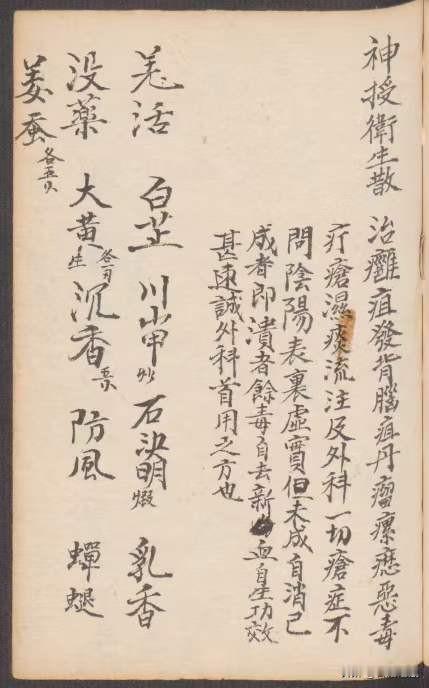 神授衛生散 治癰疽發背腦疽丹瘤瘰癧惡毒
疔瘡濕痰流注及外科一切瘡症不
問陰陽表裏虛實但未成自消已
成者即潰者餘毒自去新血自生功效
甚速誠外科首用之方也
羌活 白芷 川山甲炒 石決明煅 乳香
没藥 大黃生 各 沉香 防風 蟬蜕
姜蚕 各五